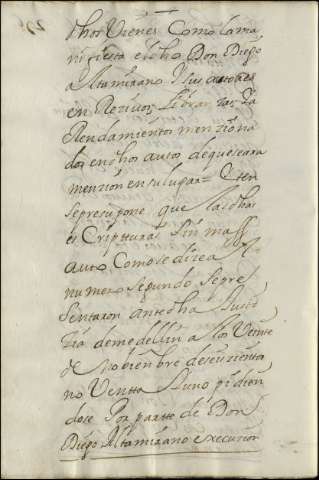 dhos Vienes Como la ma
nifiesta en dho Don Diego
Altamirano Y sus autores
en Reziuos, Libranzas, Ya
Rendamientos menziona
dos en dhos autos de que se ara
menzion en su lugar = Yten
se presupone que las dhas
escripturas Sin mas
auto Como se dize al
numero segundo se pre
sentaron ante la Justi
zia de medellin a los Veinte
de Nobienbre de seiszientos
nobentta Y uno pidien
dose Por partte de Don
Diego Altamirano execuzion